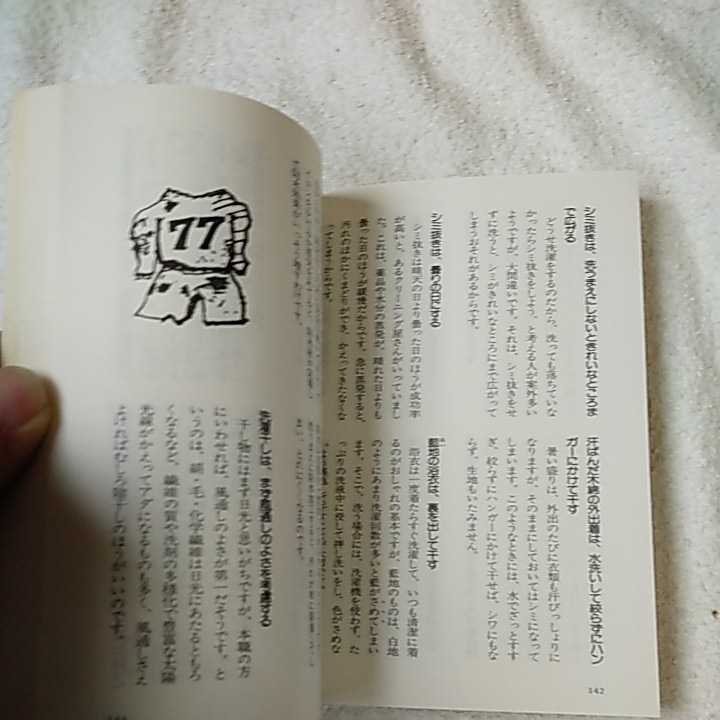 シミ抜きは、洗うまえにしないときれいなところま
で広がる
どうせ洗濯をするのだから、洗っても落ちていな
かったらシミ抜きをしよう、と考える人が案外多い
ようですが、大間違いです。それは、シミ抜きをせ
ずに洗うと、シミがきれいなところにまで広がって
しまうおそれがあるからです。
シミ抜きは、曇りの日にする
シミ抜きは晴天の日より曇った日のほうが成功率
が高いと、あるクリーニング屋さんがいっていまし
た。これは、薬品や水分の蒸発が、晴れた日よりも
曇った日のほうが緩慢だからです。急に蒸発すると、
汗ばんだ木綿の外出着は、水洗いして絞らずにハン
ガーにかけて干す
暑い盛りは、外出のたびに衣類も汗びっしょりに
なりますが、そのままにしておいてはシミになって
しまいます。このようなときには、水でさっとすす
ぎ、絞らずにハンガーにかけて干せば、シワにもな
らず、生地もいたみません。
藍地の浴衣は、裏を出して干す
浴衣は一度着たらすぐ洗濯して、いつも清潔に着
るのがおしゃれの基本ですが、藍地のものは、白地
のようにあまり洗濯回数が多いと藍がさめてしまい
ます。そこで、洗う場合には、洗濯機を使わず、た
っぷりの洗液中に浸して押し洗いをし、色がさめな
142
77
洗濯干しは、まず風通しのよさを考慮する
干し物にはまず日光と思いがちですが、本職の方
にいわせれば、風通しのよさが第一だそうです。と
いうのは、絹・毛・化学繊維は日光にあたるともろ
くなるなど、繊維の質や洗剤の多様化で、豊富な太陽
光線がかえってアダになるものも多く、風通しさえ
よければむしろ陰干しのほうがいいのです。